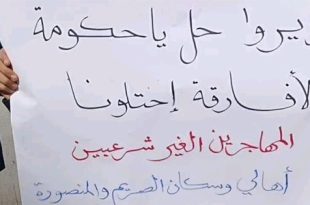 ديروا حل ياحكومة
الأفارقة إحتلونا
المهاجرين الغير شرعيين
أهالي وسكان الصريم والمنصورة